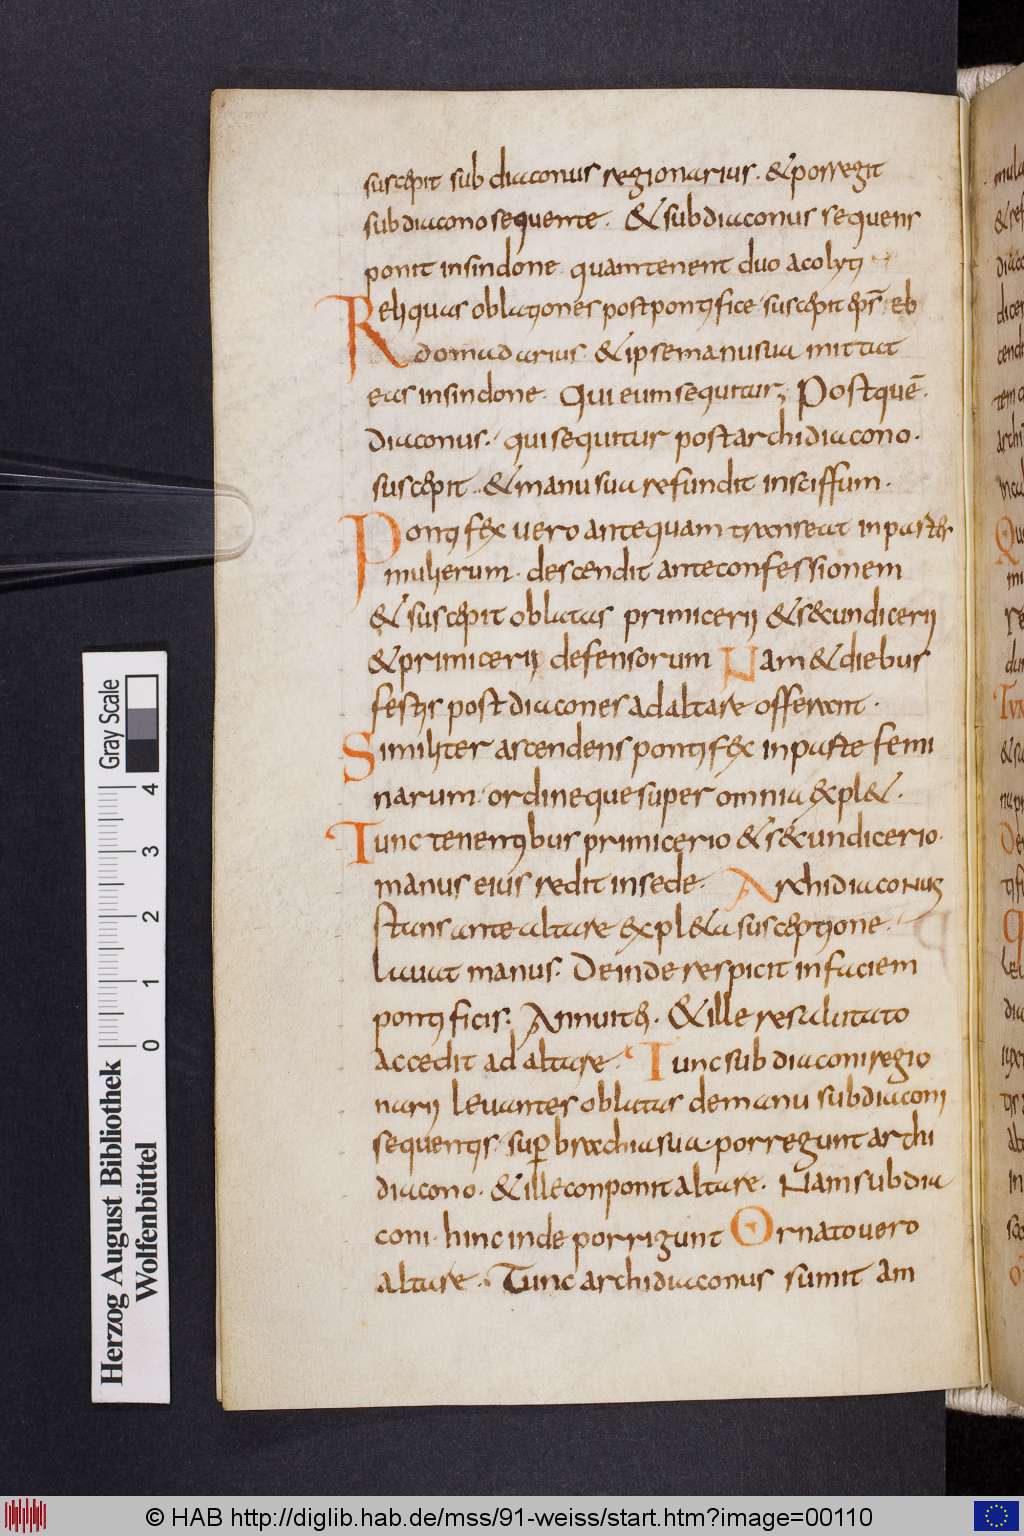 suscepit sub diaconus regionarius. & porregit
subdiacono sequente. & subdiaconus sequens
ponit in sindone quam tenent duo acolyti
Reliquas oblationes post pontifice suscepit ep̄s eb
domadarius & ipse manu sua mittat
eas in sindone. Qui eum sequitur; Post quē.
diaconus. qui sequitur post archidiacono.
suscepit. & manu sua refundit in sciffum.
Pontifex vero antequam transeat in partes
mulierum. descendit ante confessionem
& suscepit oblatas primicerii & secundicerii
& primicerii defensorum Nam & diebus
festis post diacones ad altare offerent.
Similiter ascendens pontifex in parte femi
narum. ordineque super omnia expl&.
Tunc tenentibus primicerio & secundicerio.
manus eius redit in sede. Archidiaconus
stans ante altare expl&a susceptione.
lavat manus. Deinde respicit in faciem
pontificis. Annuit ei. & ille resalutato
accedit ad altare. Tunc subdiaconi regio
narii levantes oblatas de manu subdiaconi
sequentis. sup brachia sua. porregunt archi
diacono. & ille conponit altare. Nam subdia
coni. hinc inde porrigunt Ornato vero
altare. Tunc archidiaconus sumit am
Gray Scale
4
3
2
1
0
Herzog August Bibliothek
Wolfenbüttel
© HAB http://diglib.hab.de/mss/91-weiss/start.htm?image=00110